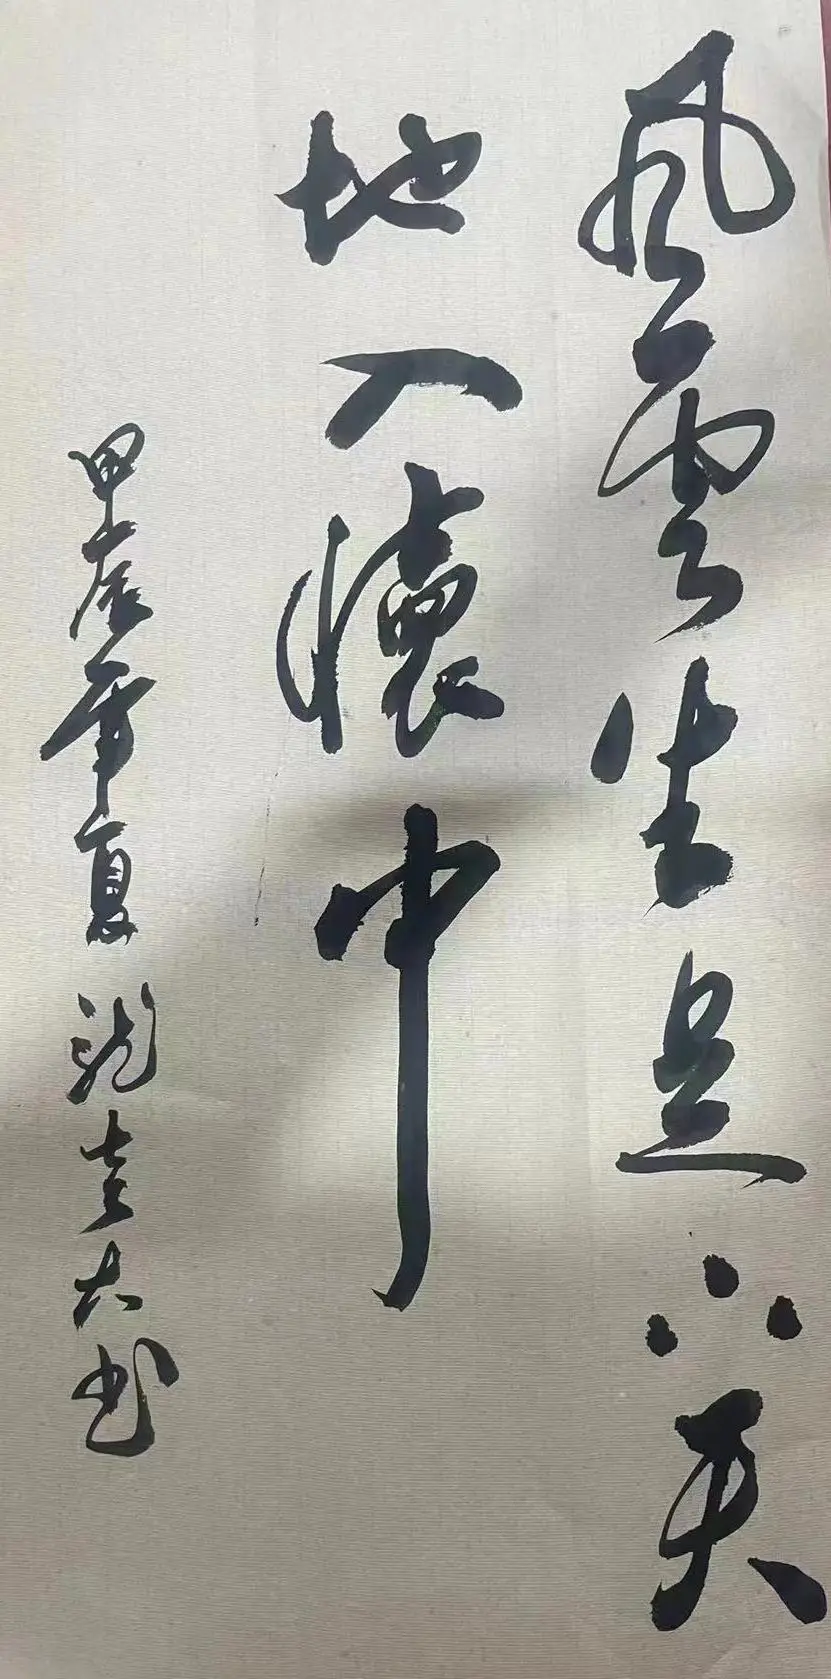 風雲生足下天
地入懷中
甲辰年夏龍書